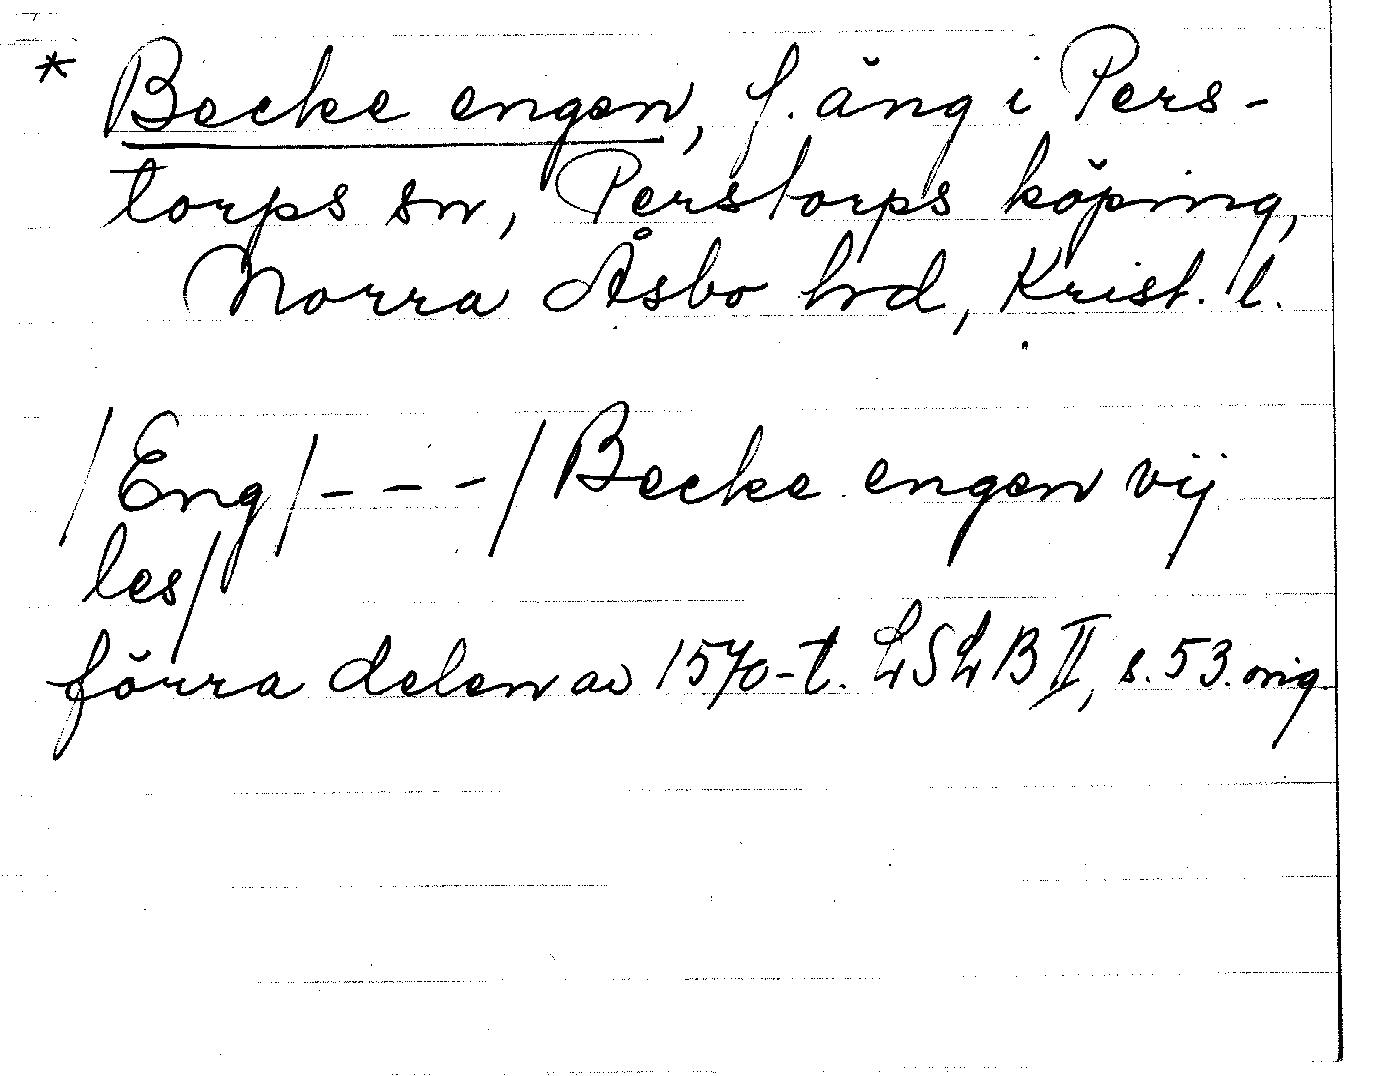 * Becke engen, f. äng i Pers-
torps sn, Perstorps köping,
Norra Åsbo hrd, Krist. l.
/Eng/---/Becke engen vij
les/
förra delen av 1570-t. LSLB II, s. 53. orig.